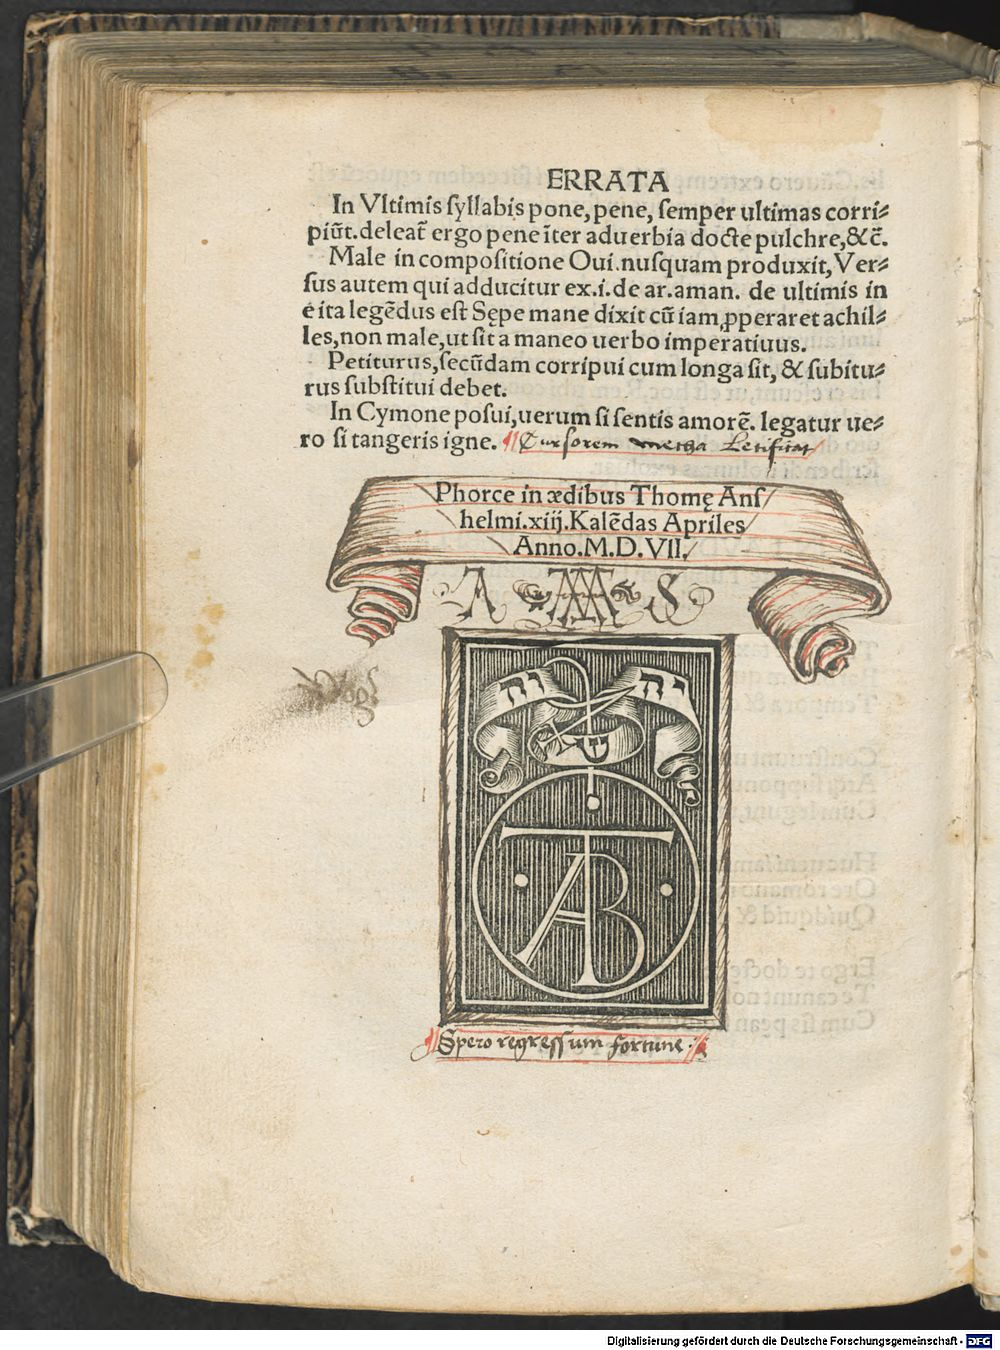 ERRATA
In Vltimis ſyllabis pone, pene, ſemper ultimas corri⸗
piūt. deleat̄ ergo pene īter aduerbia docte pulchre, &c̄.
Male in compoſitione Oui. nuſquam produxit, Ver⸗
ſus autem qui adducitur ex. i. de ar. aman. de ultimis in
e ita legēdus eſt Sępe mane dixit cū iam ꝓperaret achil⸗
les, non male, ut ſit a maneo uerbo imperatiuus.
Petiturus, ſecūdam corripui cum longa ſit, & ſubitu⸗
rus ſubſtitui debet.
In Cymone poſui, uerum ſi ſentis amorē. legatur ue⸗
ro ſi tangeris igne. Curſorem metha Letificat
Phorce in ædibus Thomę Anſ
helmi. xiij. Kalēdas Apriles
Anno. M. D. VII.
יה
וה
ש
TAB
Spero regreſſum fortune
Digitalisierung gefördert durch die Deutsche Forschungsgemeinschaft - DFG